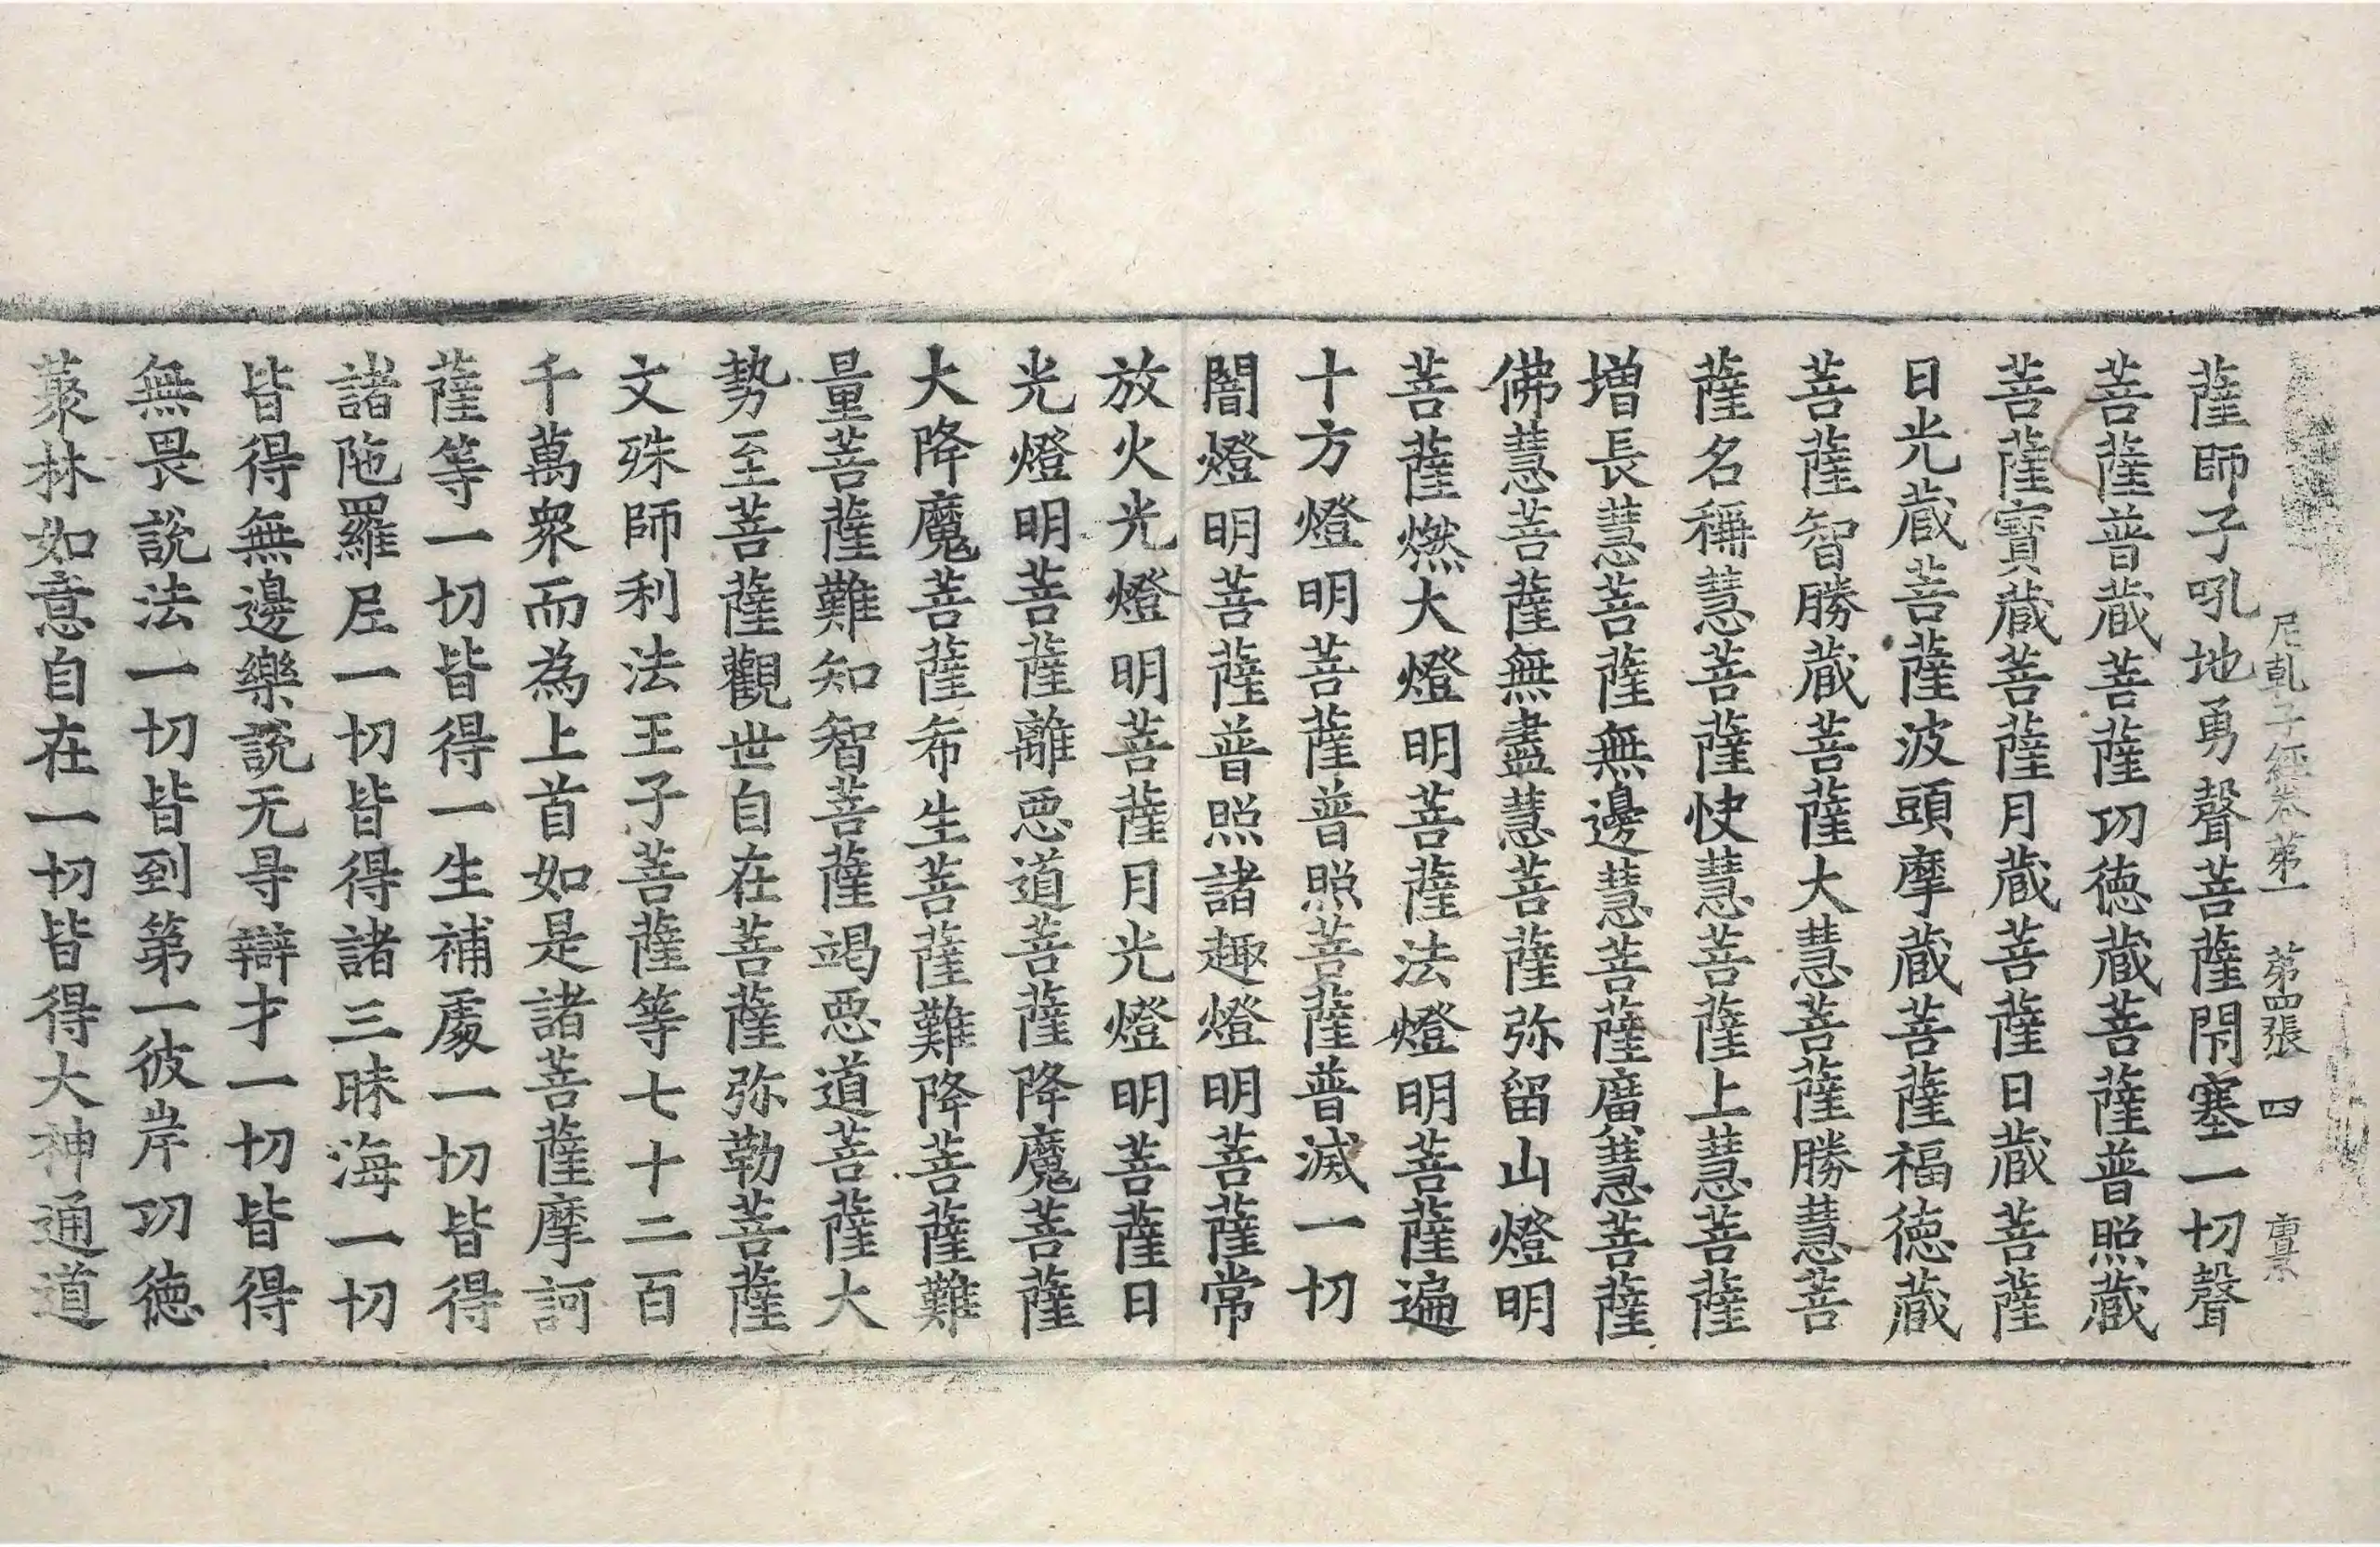 尼乹子經卷第一　第四張　四
薩師子吼地勇聲菩薩閇塞一切聲
菩薩普蔵菩薩功徳蔵菩薩普照蔵
菩薩寶蔵菩薩月蔵菩薩日蔵菩薩
日光蔵菩薩波頭摩蔵菩薩福徳蔵
菩薩智勝蔵菩薩大慧菩薩勝慧菩
薩名稱慧菩薩快慧菩薩上慧菩薩
増長慧菩薩無邊慧菩薩廣慧菩薩
佛慧菩薩無盡慧菩薩弥留山燈明
菩薩燃大燈明菩薩法燈明菩薩遍
十方燈明菩薩普照菩薩普滅一切
闇燈明菩薩普照諸趣燈明菩薩常
放火光燈明菩薩月光燈明菩薩日
光燈明菩薩離惡道菩薩降魔菩薩
大降魔菩薩希生菩薩難降菩薩難
量菩薩難知智菩薩竭惡道菩薩大
勢至菩薩觀世自在菩薩弥勒菩薩
文殊師利法王子菩薩等七十二百
千萬衆而為上首如是諸菩薩摩訶
薩等一切皆得一生補處一切皆得
諸陁羅尼一切皆得諸三昧海一切
皆得無邊樂說无㝵辯才一切皆得
無畏說法一切皆到第一彼岸功徳
藂林如意自在一切皆得大神通道